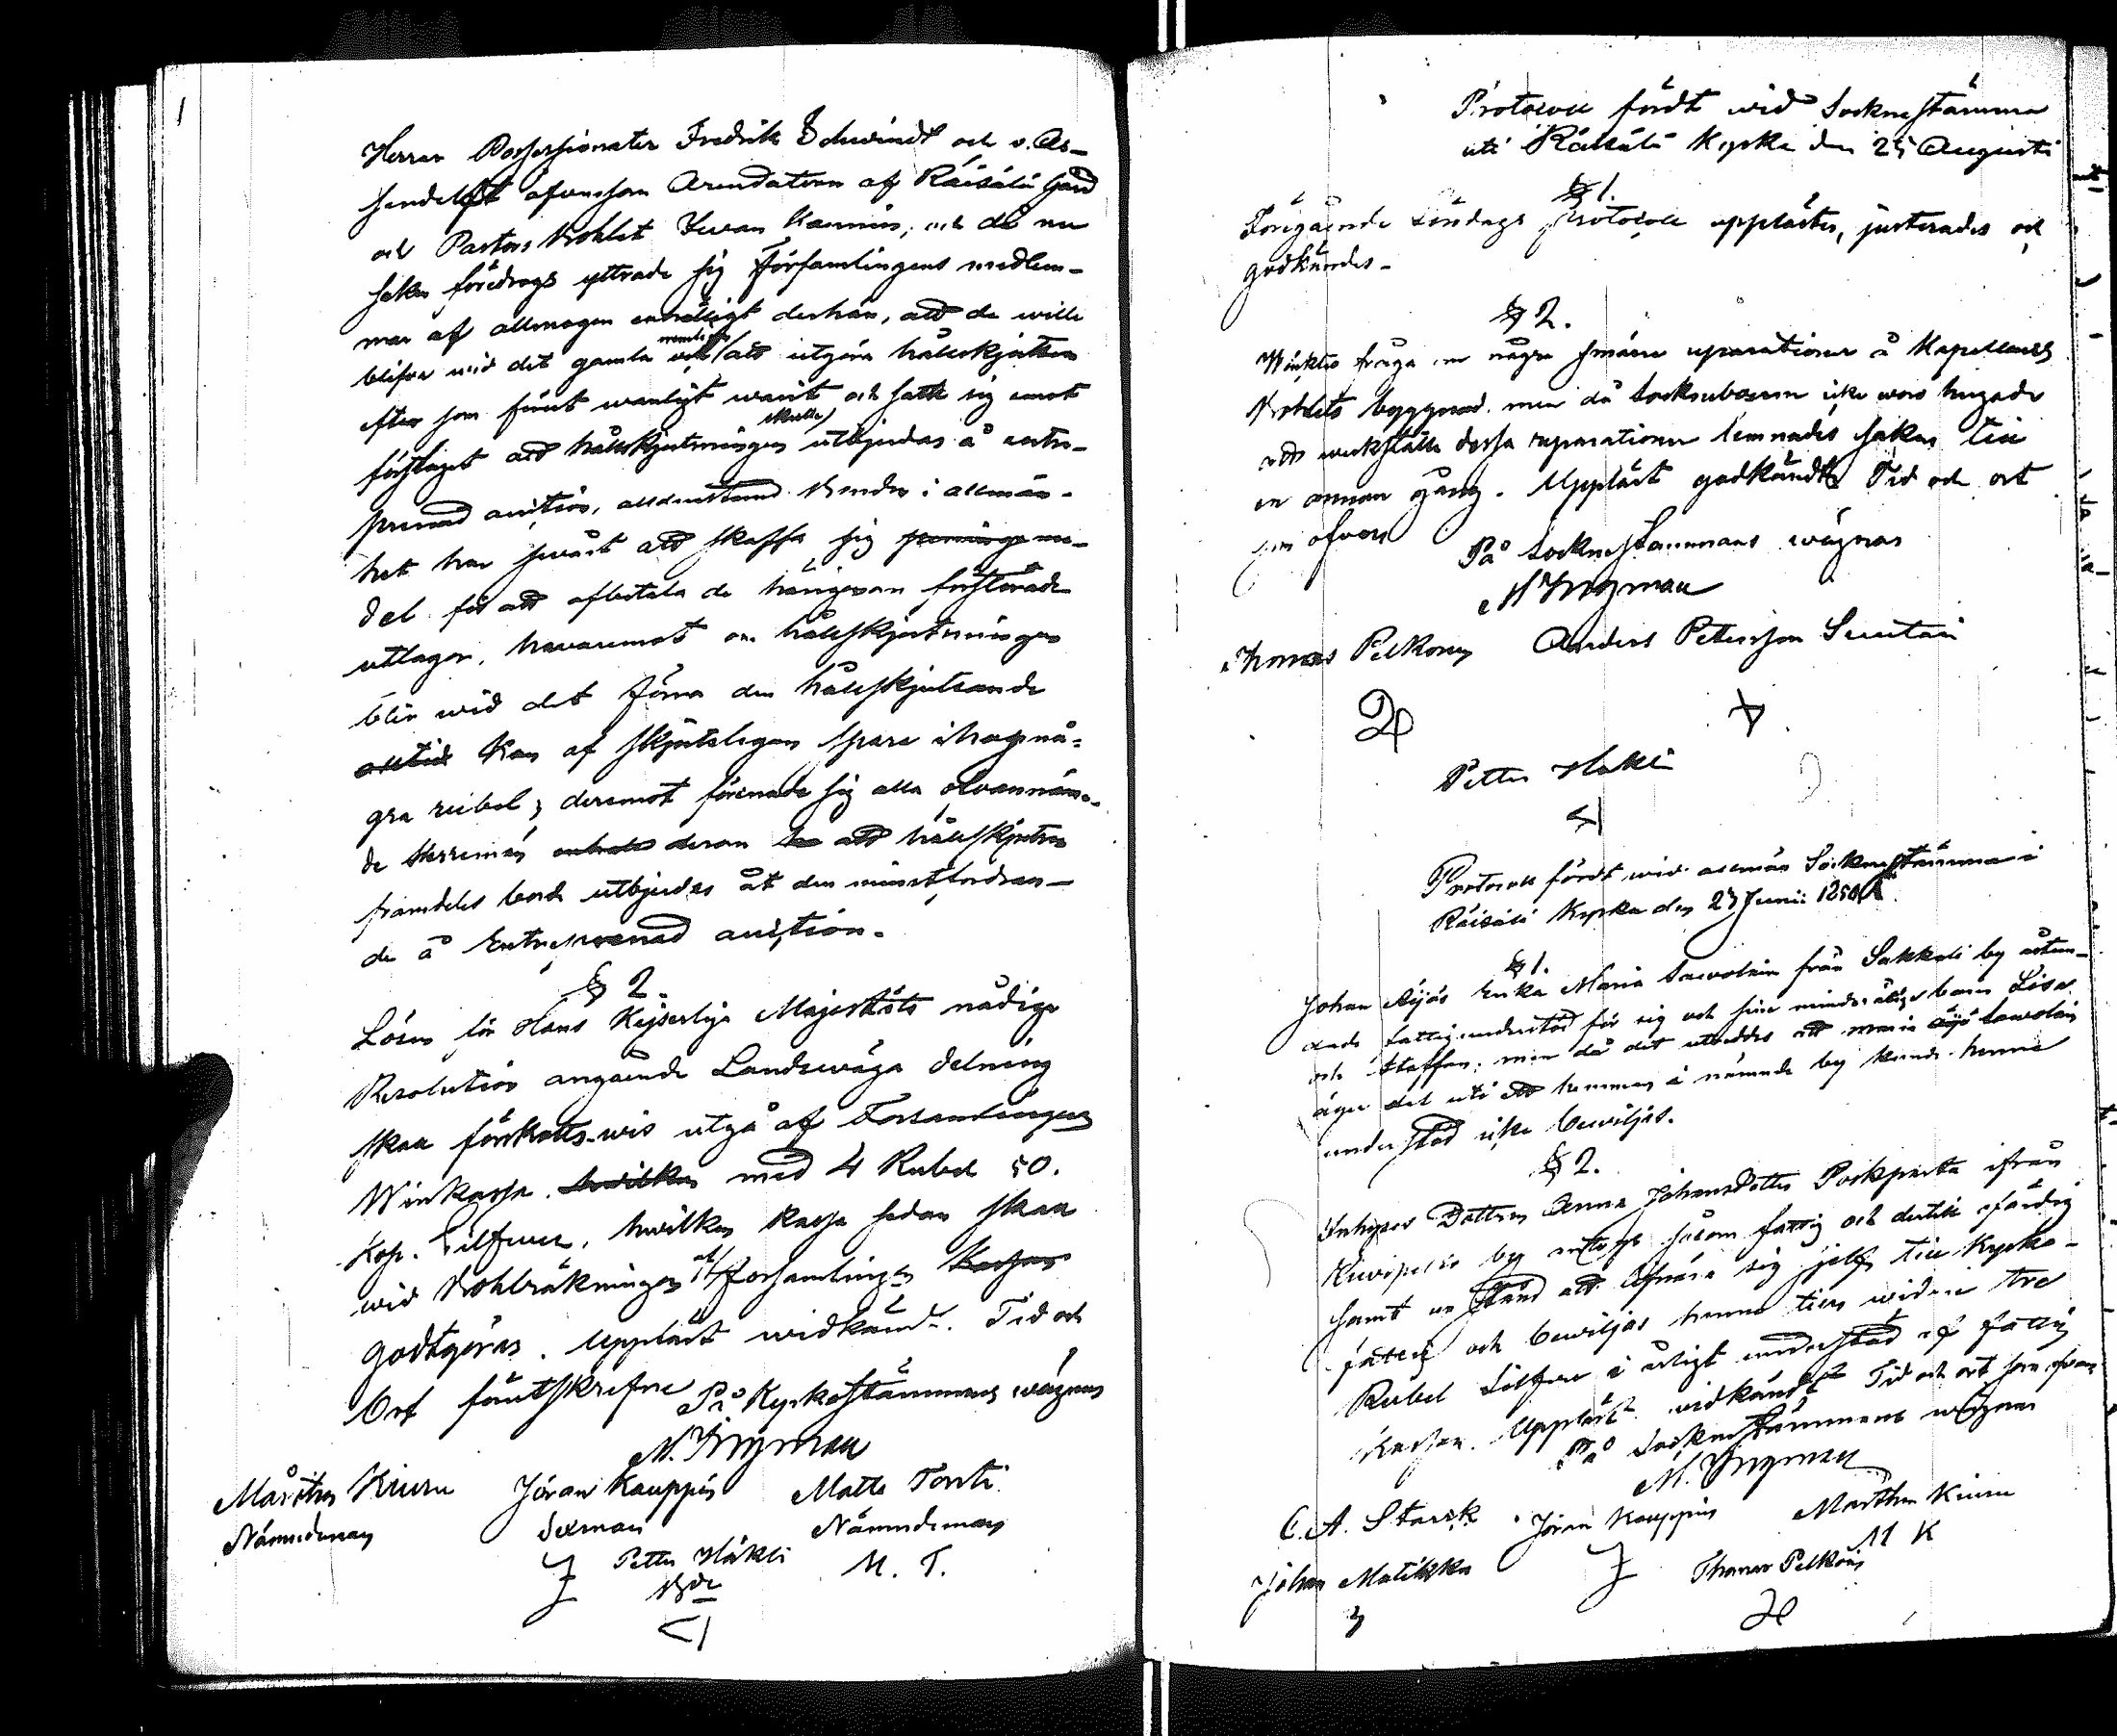 Herrar Possessionater Fredrik Schwindt och v. As-
sendelft äfvensom Arendatorn af Räisälä Gård
och Pastors Bohlet Iwan Kaumin, och då nu
saken föredrogs yttrade sig Församlingens medlem-
mar af allmogen enhälligt derhän, att de wille
blifva wid det gamla att utgöra hållskjutsen
efter som förut wanligt warit och satte sig emot
förslaget att hållskjutsningen skulle utbjudas å entre-
prenad auction, alldenstund Bonden i allmän-
het har swårt att skaffa sig me-
del för att afbetala de härigenom förstorade
utlagor, hwaremot om hållskjutsningen
blir wid det förra den hållskjutsande
alltid kan af skjutslegan spara ihop nå-
gra rubel; deremot förenade sig alla ofvannämn-
de Herremän derom att hållskjutsen
framdeles borde utbjudas åt den minstfordran-
de å Entreprenad auction.
§ 2.
Lösen för Hans Kejserliga Majestäts nådiga
Resolution angående Landswäga delning
skall förskotts-wis utgå af Församlingens
Winkassa. hwilken med 4 Rubel 50.
Kop. Silfwer, hwilken kassa sedan skall
wid Bohlräkningen af Församlingen Kassan
godtgöras. Uppläst widkändt. Tid och
Ort förutskrefne På Kyrkostämmans wägnar
N. Ingman
Marthin Kiuru Jöran Kauppin Matts Torsti
Nämndeman Sexman Nämndeman
J Petter Häkli M. T.
Bde
<|
Protocoll fördt wid Socknestämma
uti Räisälä Kyrka den 25 Augusti
§ 1.
Föregående Söndags Protocoll upplästes, justerades och
godkändes-
§ 2.
Wäcktes fråga om några smärre reparationer å Kapellans
Bohlets byggnad. men då Sockneboerne icke woro hugade
att werkställa dessa reparationer lemnades saken till
en annan gång. Uppläst godkändt Tid och ort
som ofvan
På Socknestämmans wägnar
N Ingman
Thomas Pelkonen Anders Petersson Seuntari
Petter Häkli
<|
Protocoll fördt wid allmän Socknestämma i
Räisälä Kyrka den 23 Junii 1850
§ 1.
Johan Äijös Enka Maria Sawolain från Sakkali by åstun-
dade Fattigunderstöd för sig och sine minderåriga barn Lisa
och Staffan; men då det utreddes att Maria Äijö Sawolain
äger del uti ett hemman i nämnde by kunde henne
understöd icke bewiljas.
§ 2.
Inhyses Dottren Anna Johansdotter Poskparta ifrån
by antogs såsom fattig och dertill ofärdig
samt ur stånd att lifnära sig sjelf till Kyrko-
fattig och bewiljas henne tills widare tre
Rubel Silfwer i årligt understöd af fattig
kassan. Uppläst widkändt Tid och ort som ofvan
På Socknestämmans wägnar
N. Ingman
C. A. Starck Jöran Kauppin Marthin Kiuru
J M K
Johan Matikka Thomas Pelkoin